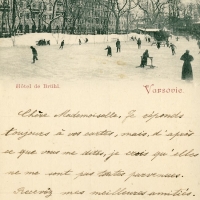 Hôtel de Brühl
Varsovie
Chère Mademoiselle, Je réponds
toujours à vos cartes, mais, d'après
ce que vous me dites, je crois qu'elles
ne me sont pas toutes parvenues.
Recevez mes meilleures amitiés.